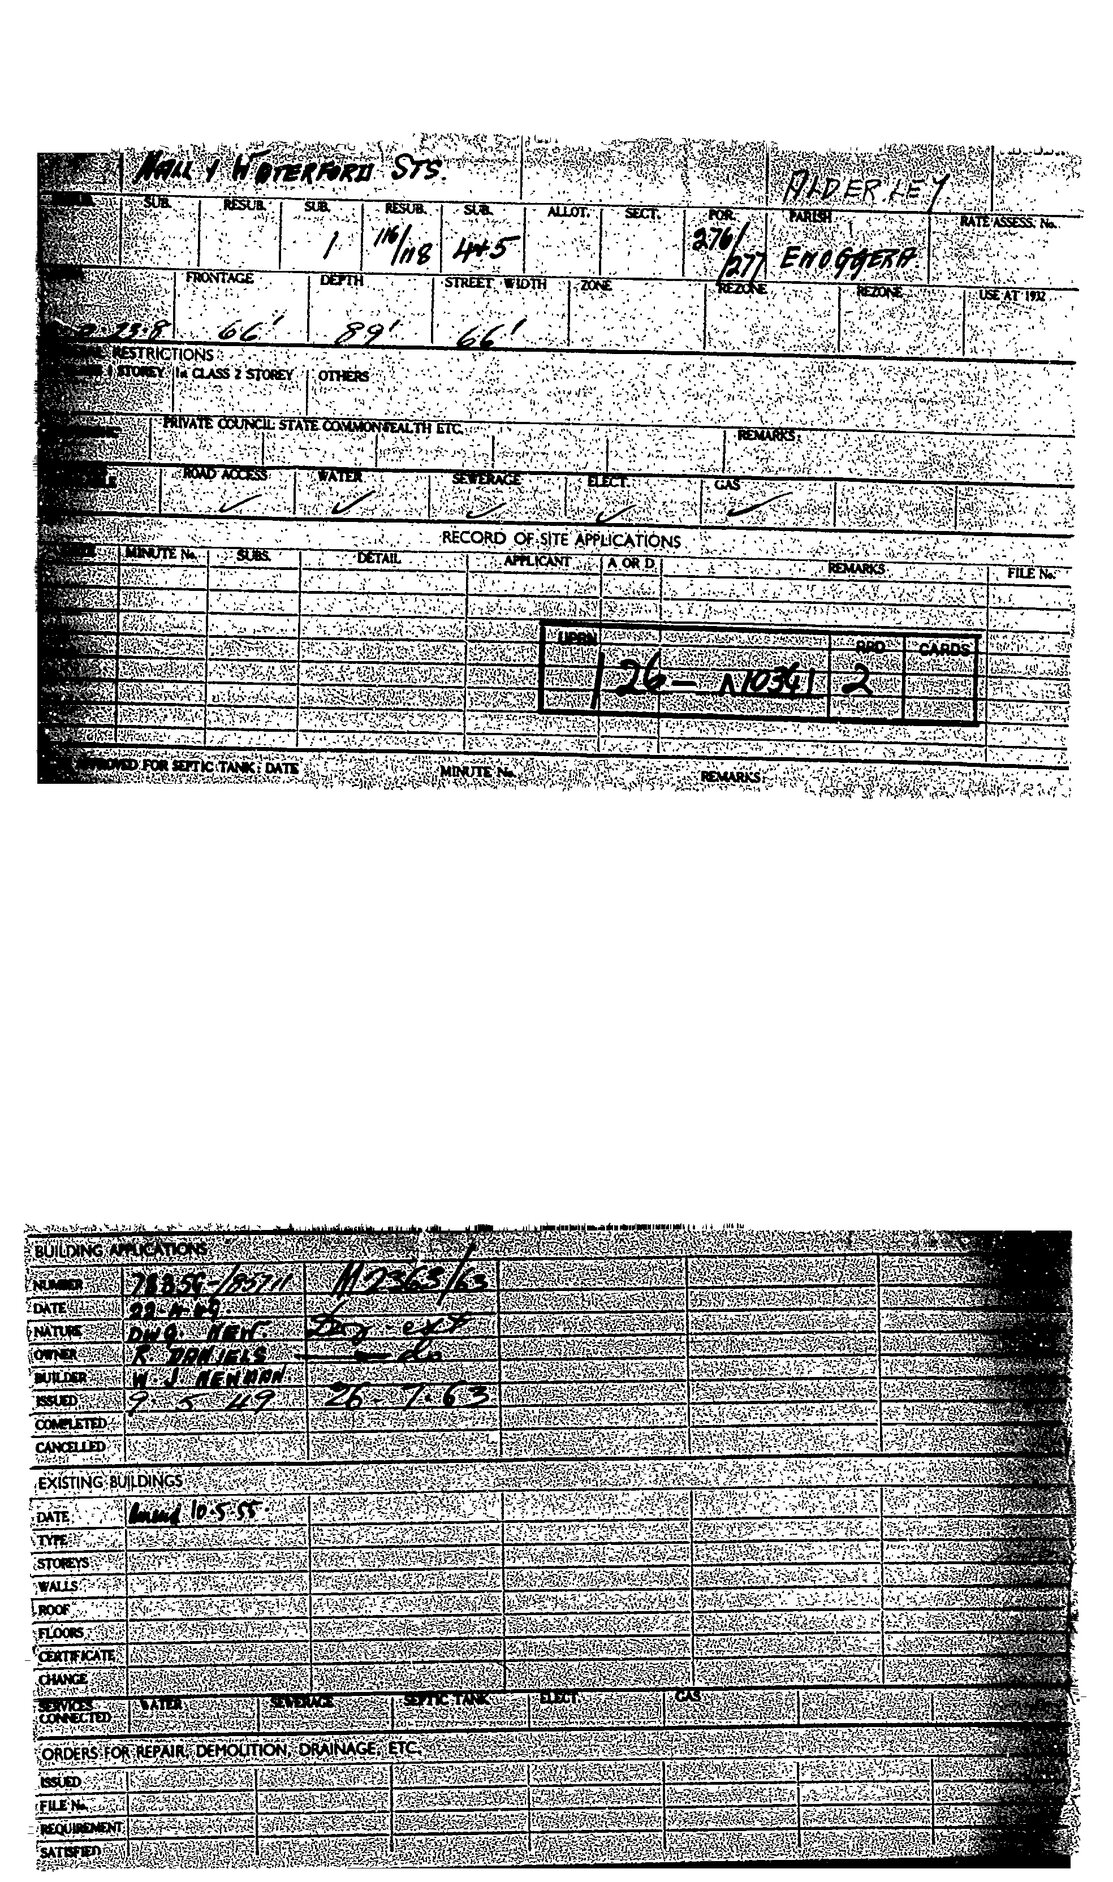 HALL & WATERFORD STS. ALDERLEY
SUB. RESUB. SUB. RESUB. SUB. ALLOT. SECT. POR. PARISH RATE ASSESS. No.
1 116/118 4+5 276/277 ENOGGERA
FRONTAGE DEPTH STREET WIDTH ZONE REZONE REZONE USE AT 1932
23·8 66' 89' 66'
RESTRICTIONS
1 STOREY 1a CLASS 2 STOREY OTHERS
PRIVATE COUNCIL STATE COMMONWEALTH ETC. REMARKS
ROAD ACCESS WATER SEWERAGE ELECT. GAS
✓ ✓ ✓ ✓ ✓
RECORD OF SITE APPLICATIONS
MINUTE No. SUBS. DETAIL APPLICANT A OR D REMARKS FILE No.
UPRN RPD CARDS
126- 10341 2
APPROVED FOR SEPTIC TANK: DATE MINUTE No. REMARKS
BUILDING APPLICATIONS
NUMBER /85711 M2363/63
DATE
NATURE DWG. NEW. ext
OWNER R. DANIELS do
BUILDER W. J. NEWMAN
ISSUED 9·5·49 26·7·63
COMPLETED
CANCELLED
EXISTING BUILDINGS
DATE 10·5·55
TYPE
STOREYS
WALLS
ROOF
FLOORS
CERTIFICATE
CHANGE
SERVICES CONNECTED WATER SEWERAGE SEPTIC TANK ELECT GAS
ORDERS FOR REPAIR, DEMOLITION, DRAINAGE, ETC.
ISSUED
FILE No.
REQUIREMENT
SATISFIED